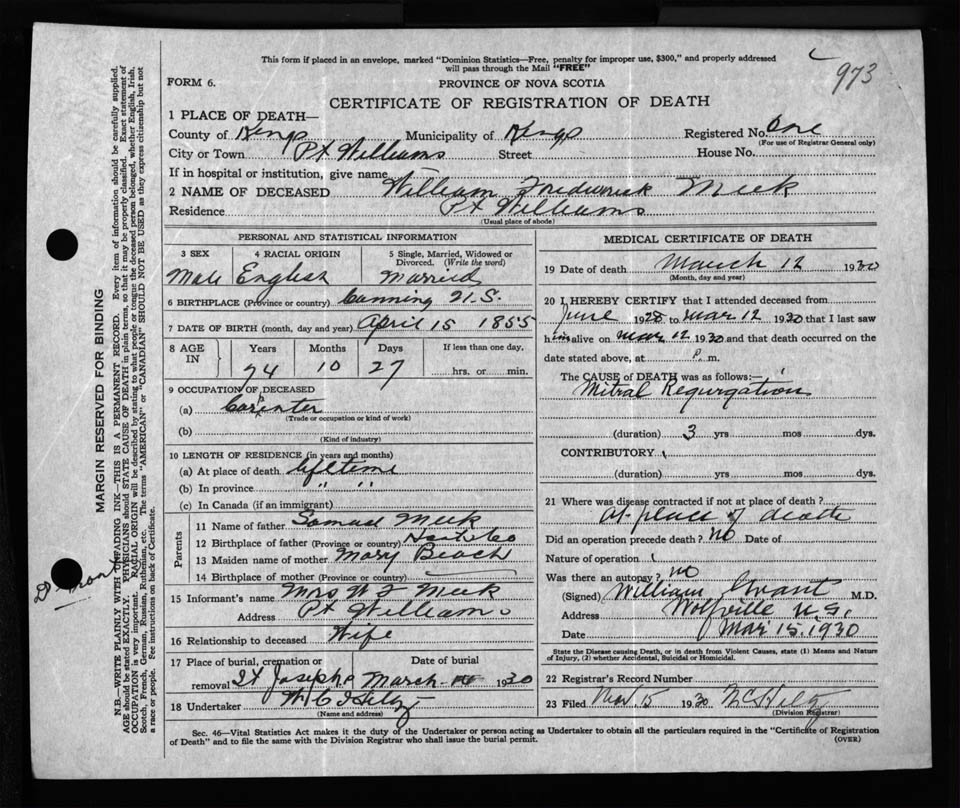 This form if placed in an envelope, marked "Dominion Statistics—Free, penalty for improper use, $300," and properly addressed
will pass through the Mail "FREE"
973
FORM 6.
PROVINCE OF NOVA SCOTIA
CERTIFICATE OF REGISTRATION OF DEATH
1 PLACE OF DEATH—
County of Kings Municipality of Kings Registered No. One
(For use of Registrar General only)
City or Town Pt Williams Street House No.
If in hospital or institution, give name
2 NAME OF DECEASED William Frederick Meek
Residence Pt Williams
(Usual place of abode)
PERSONAL AND STATISTICAL INFORMATION
3 SEX 4 RACIAL ORIGIN 5 Single, Married, Widowed or Divorced. (Write the word)
Male English Married
6 BIRTHPLACE (Province or country) Canning N.S.
7 DATE OF BIRTH (month, day and year) April 15 1855
8 AGE IN Years Months Days If less than one day,
74 10 27 hrs. or min.
9 OCCUPATION OF DECEASED
(a) Carpenter
(Trade or occupation or kind of work)
(b)
(Kind of industry)
10 LENGTH OF RESIDENCE (in years and months)
(a) At place of death lifetime
(b) In province " "
(c) In Canada (if an immigrant)
Parents
11 Name of father Samuel Meek
12 Birthplace of father (Province or country) Hants Co
13 Maiden name of mother Mary Beach
14 Birthplace of mother (Province or country)
15 Informant's name Mrs W F Meek
Address Pt Williams
16 Relationship to deceased Wife
17 Place of burial, cremation or Date of burial
removal St Josephs March 1930
18 Undertaker W C
(Name and address)
MEDICAL CERTIFICATE OF DEATH
19 Date of death March 12 1930
(Month, day and year)
20 I HEREBY CERTIFY that I attended deceased from
June 1928 to Mar 12 1930 that I last saw
him alive on Mar 12 1930 and that death occurred on the
date stated above, at P. m.
The CAUSE of DEATH was as follows:—
Mitral Regurgation
(duration) 3 yrs mos dys.
CONTRIBUTORY
(duration) yrs mos dys.
21 Where was disease contracted if not at place of death?
At place of death
Did an operation precede death? no Date of
Nature of operation
Was there an autopsy? no
(Signed) William Grant M.D.
Address Wolfville N.S.
Date Mar 15. 1930
State the Disease causing Death, or in death from Violent Causes, state (1) Means and
Nature of Injury, (2) whether Accidental, Suicidal or Homicidal.
22 Registrar's Record Number
23 Filed Mar 15 1930
(Division Registrar)
Sec. 46—Vital Statistics Act makes it the duty of the Undertaker or person acting as Undertaker to obtain all the particulars required in the "Certificate of Registration
of Death" and to file the same with the Division Registrar who shall issue the burial permit.
(OVER)
MARGIN RESERVED FOR BINDING
N.B.—WRITE PLAINLY WITH UNFADING INK—THIS IS A PERMANENT RECORD. Every item of information should be carefully supplied.
AGE should be stated EXACTLY. PHYSICIANS should STATE CAUSE OF DEATH in plain terms, so that it may be properly classified. Exact statement of
OCCUPATION is very important. RACIAL ORIGIN will be described by stating to what people or tongue the deceased person belonged, whether English, Irish,
Scotch, French, German, Russian, Ruthenian, etc. The terms "AMERICAN" or "CANADIAN" SHOULD NOT BE USED as they express citizenship but not
a race or people. See instructions on back of Certificate.